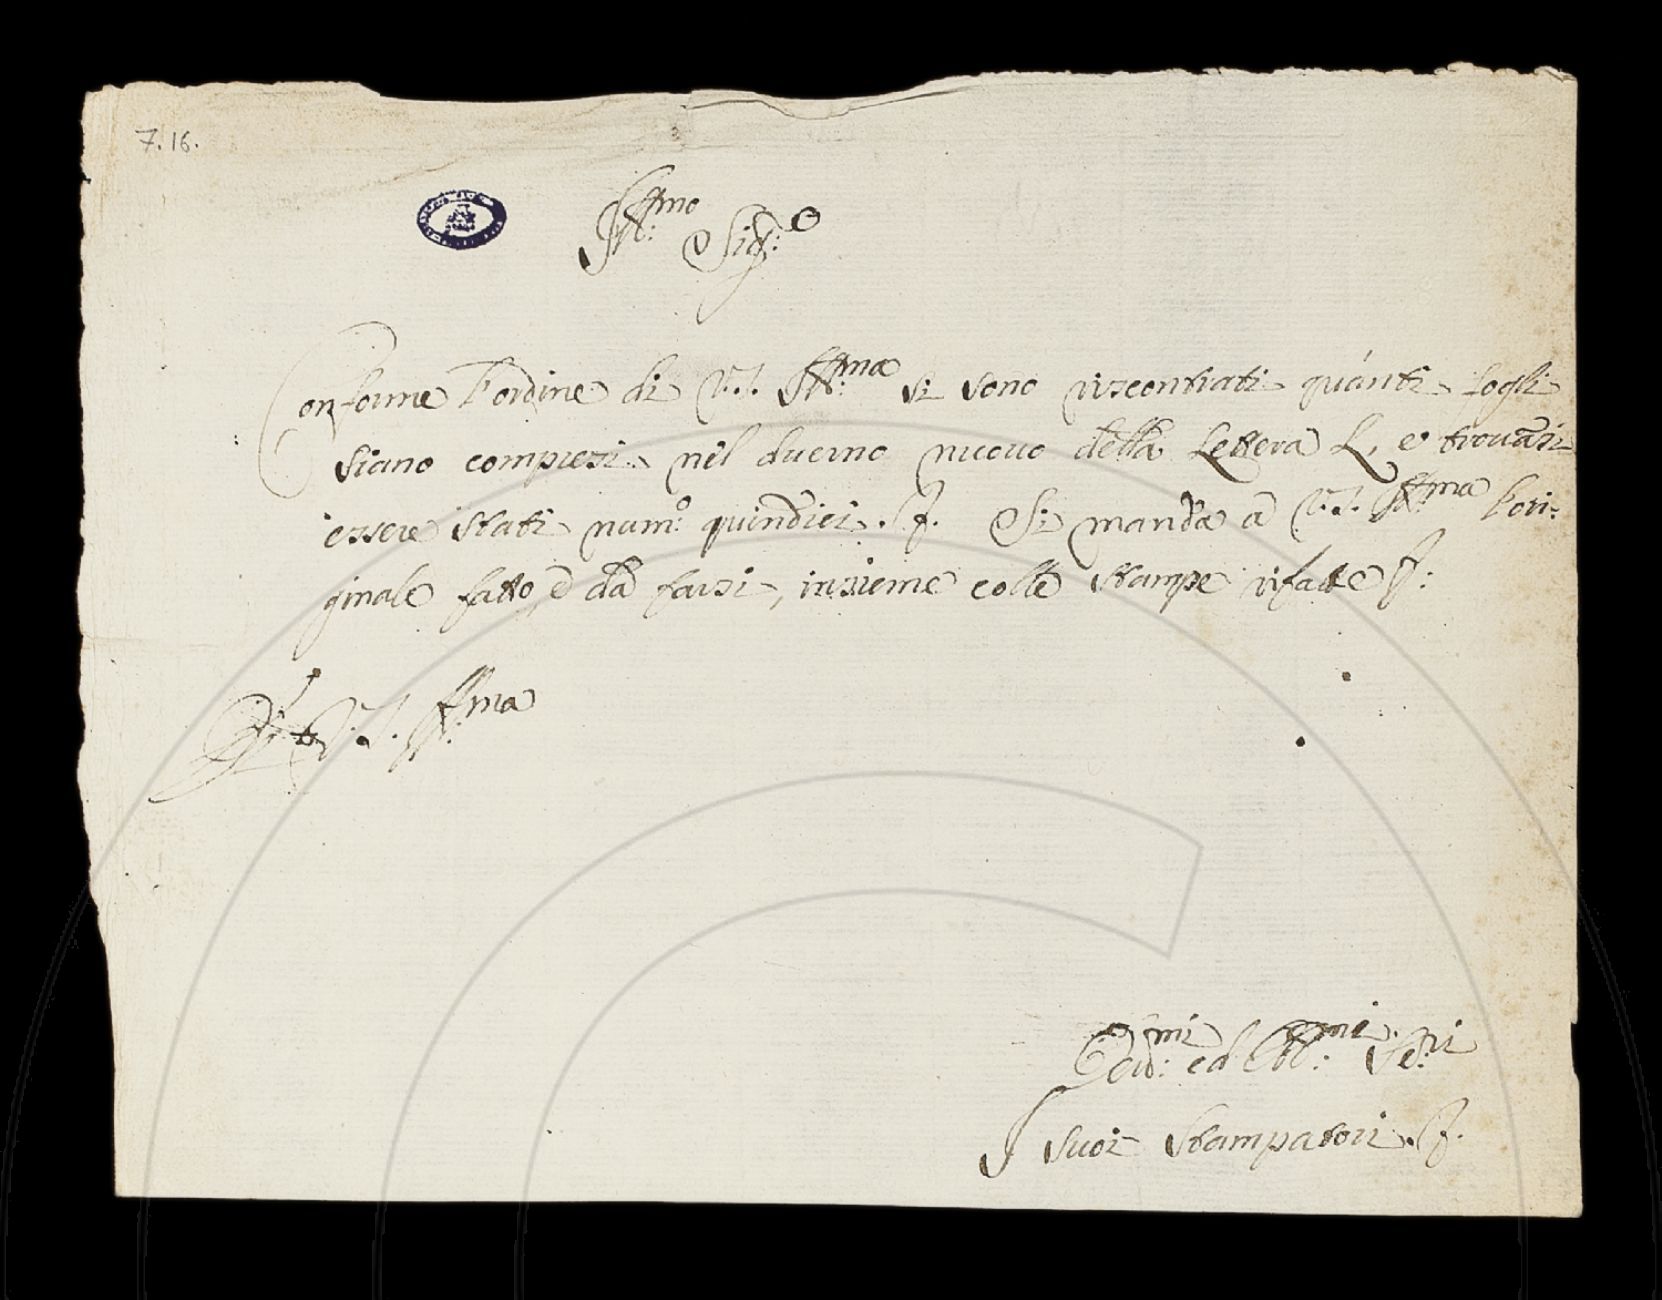 7.16.
Ill:mo Sig:e
Conforme l'ordine di V.S. Ill:ma si sono riscontrati quanti fogli
siano compresi nel duerno nuouo della Lettera L, e trouasi
essere stati num:o quindici. Si manda a V.S. Ill:ma l'ori:
ginale fatto, e da farsi, insieme colle stampe rifatte
Di V.S. Ill:ma
Deu:mi ed Obl:mi Se:ri
I suoi Stampatori.